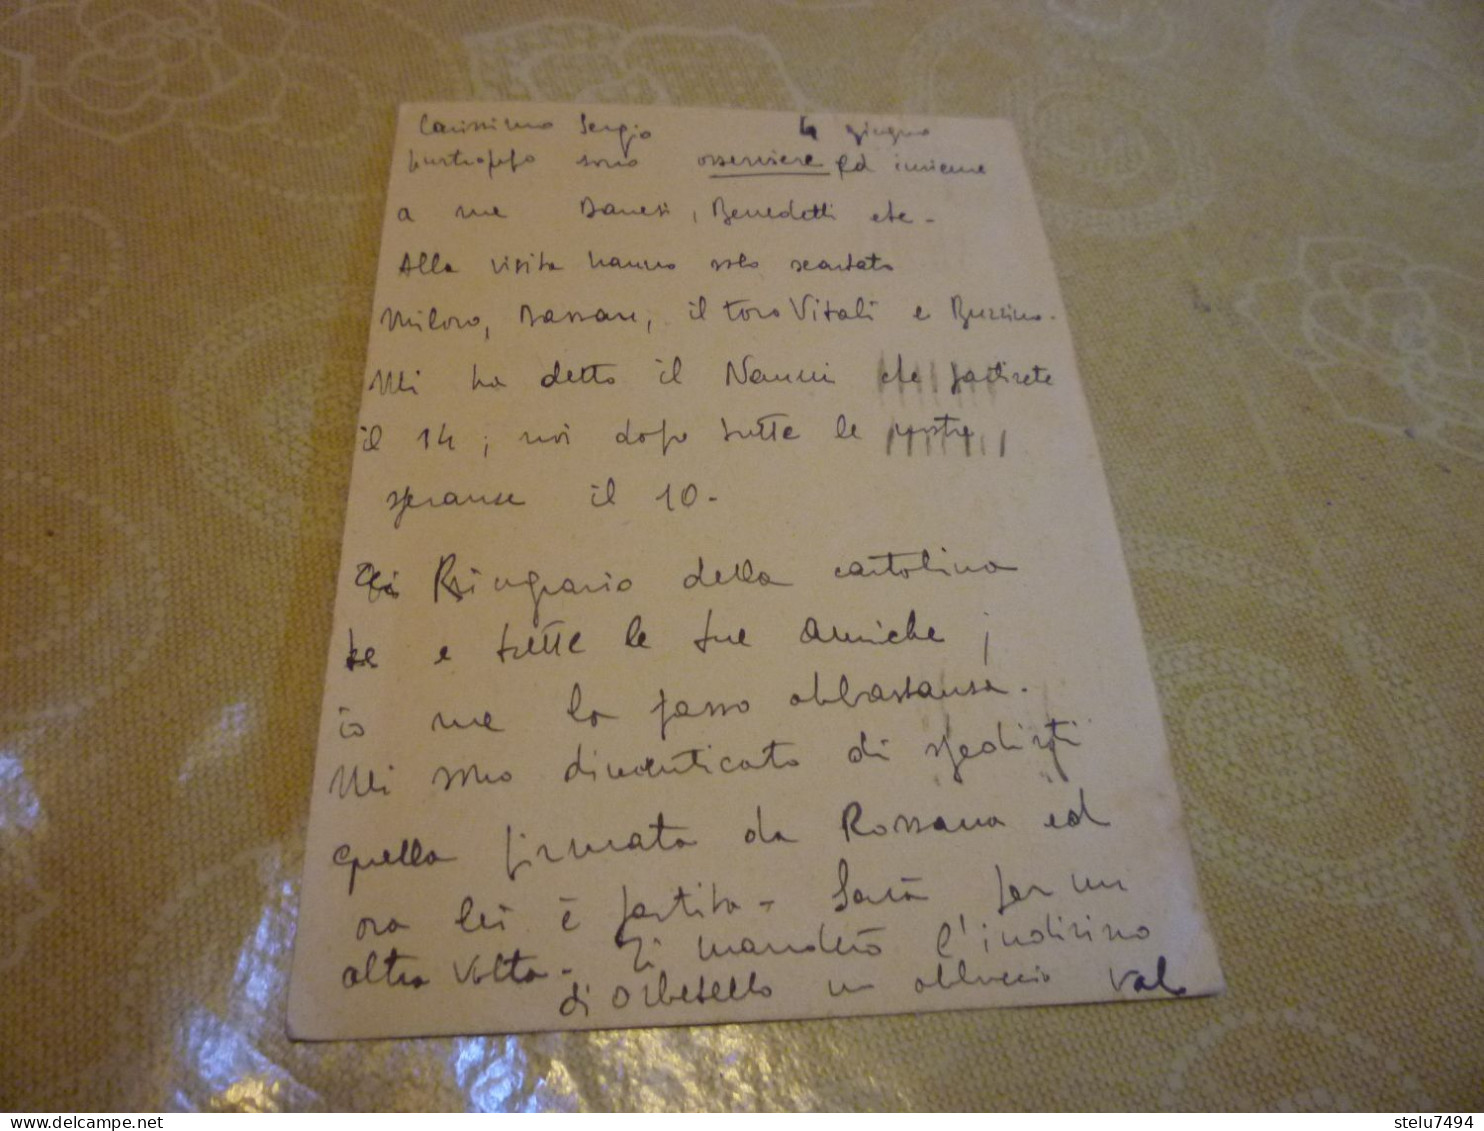 Carissimo Sergio 4 giugno
purtroppo sono osserviere ed insieme
a me Banesi, Benedetti etc -
Alla visita hanno solo scartato
Miloro, Bassan, il toro Vitali e Buzzino.
Mi ha detto il Nanni che partirete
il 14; noi dopo tutte le nostre
speranze il 10 -
Ringrazio della cartolina
te e tutte le tue amiche;
io me la passo abbastanza.
Mi sono dimenticato di spedirti
quella firmata da Rossana ed
ora lei è partita - Sarà per un
altra volta - Ti manderò l'indirizzo
di Orbetello un abbraccio Valo
delcampe.net
stelu7494